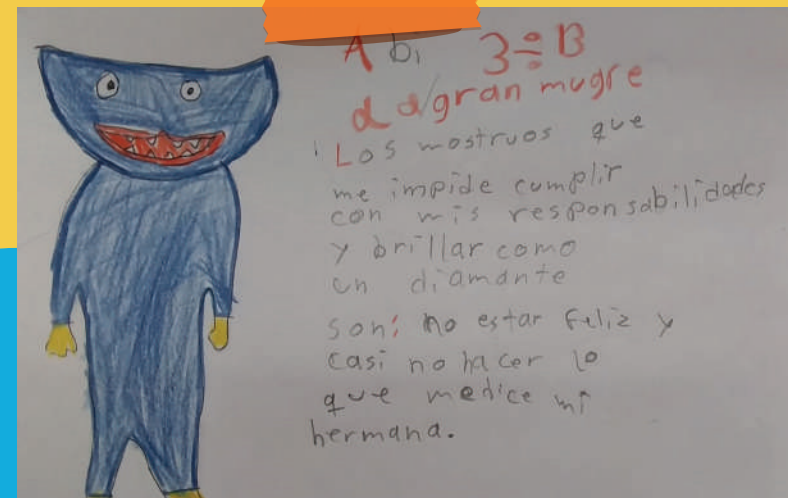 Abi 3÷B
dd/gran mugre
Los mostruos que
me impide cumplir
con mis responsabilidades
y brillar como
un diamante
son: no estar feliz y
casi no hacer lo
que medice mi
hermana.